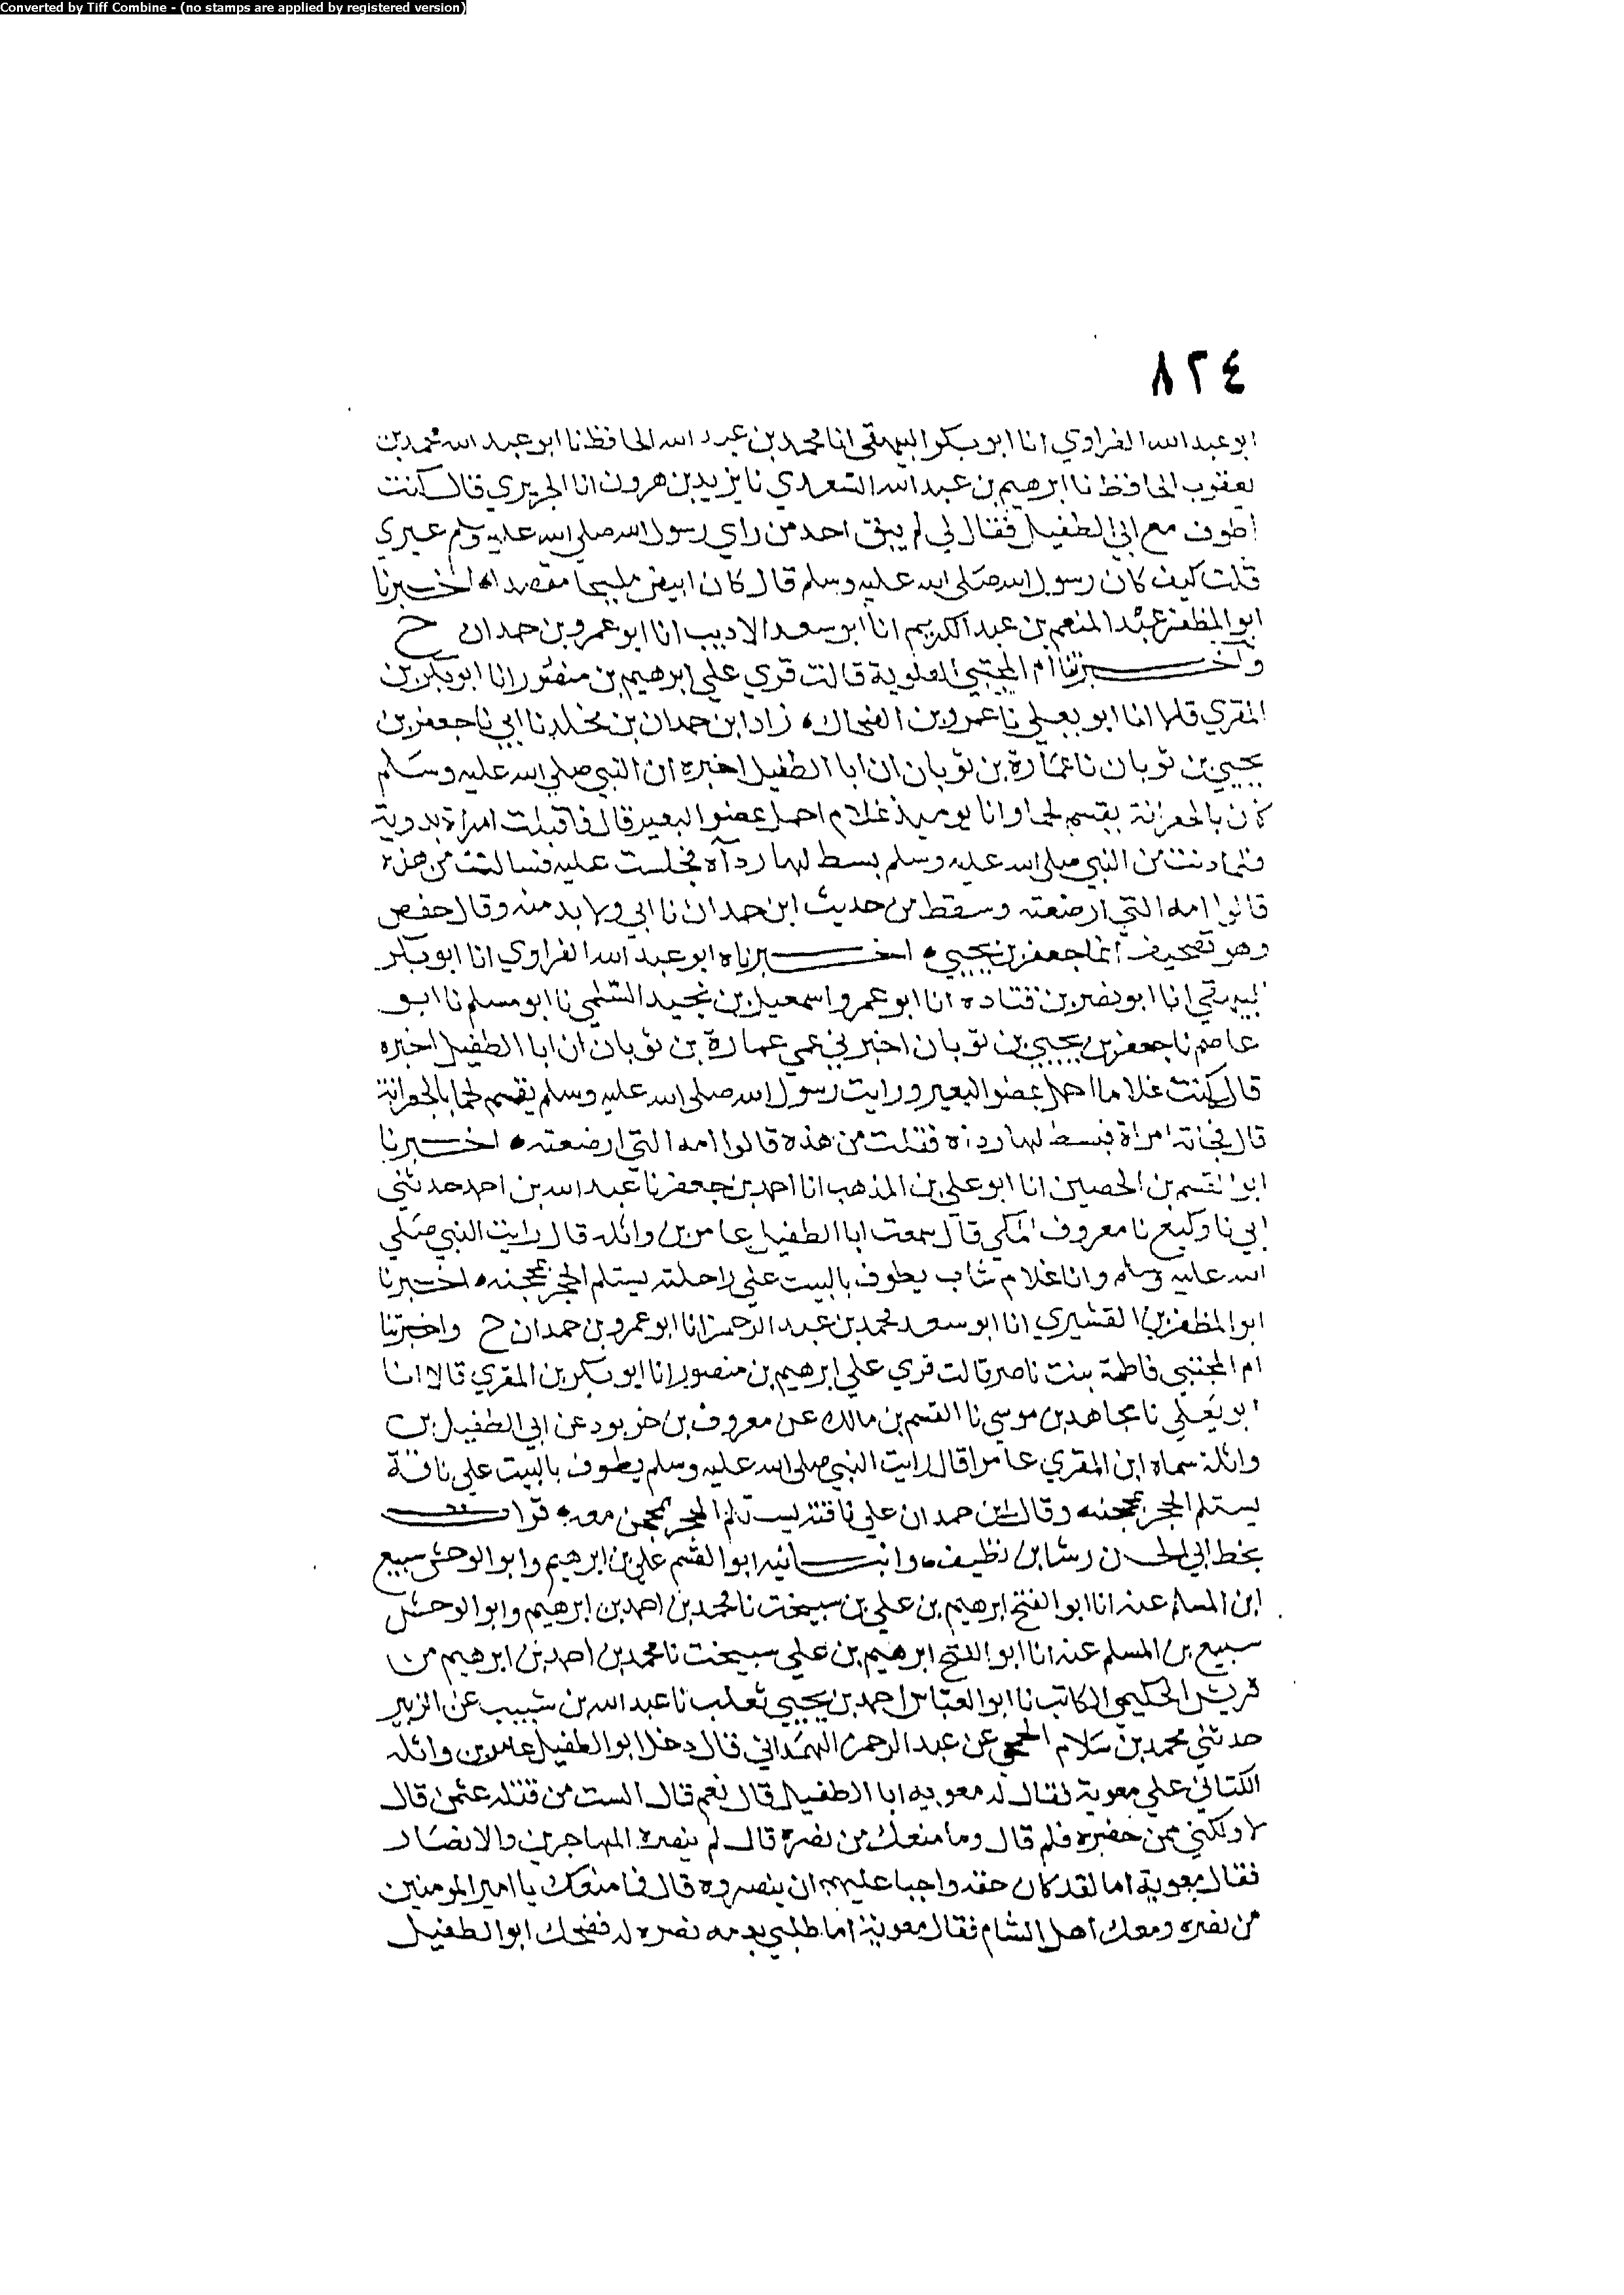 Converted by Tiff Combine - (no stamps are applied by registered version)
٨٢٤
ابو عبد الله الفراوي انا ابو بكر البيهقى انا محمد بن عبد الله الحافظ نا ابو عبد الله محمد بن
يعقوب الحافظ نا ابرهيم بن عبد الله السعدي نا يزيد بن هرون انا الجريري قال كنت
اطوف مع ابي الطفيل فقال لي لم يبق احد من راي رسول الله صلى الله عليه وسلم غيري
قلت كيف كان رسول الله صلى الله عليه وسلم قال كان ابيض مليحا مقصدا ه اخبرنا
ابو المظفر عبد المنعم بن عبد الكريم انا ابو سعد الاديب انا ابو عمرو بن حمدان ح
واخبرتنا ام المجتبي العلوية قالت قري علي ابرهيم بن منصور انا ابو بكر بن
المقري قالا انا ابو يعلي نا عمرو بن الضحاك ه زاد ابن حمدان بن مخلد نا ابي نا جعفر بن
يحيي بن ثوبان نا عمارة بن ثوبان ان ابا الطفيل اخبره ان النبي صلي الله عليه وسلم
كان بالجعرانة يقسم لحما وانا يوميذ غلام احمل عضو البعير قال فاقبلت امراة بدوية
فلما دنت من النبي صلى الله عليه وسلم بسط لها رداه فجلست عليه فسالت من هذه
قالوا امه التي ارضعته وسقط من حديث ابن حمدان نا ابي ولا بد منه وقال حفص
وهو تصحيف انما جعفر بن يحيي ه اخبرناه ابو عبد الله الفراوي انا ابو بكر
البيهقي انا ابو نصر بن قتاده انا ابو عمرو اسمعيل بن نجيد السلمي نا ابو مسلم نا ابو
عاصم نا جعفر بن يحيي بن ثوبان اخبرني عمي عمارة بن ثوبان ان ابا الطفيل اخبره
قال كنت غلاما احمل عضو البعير ورايت رسول الله صلى الله عليه وسلم يقسم لحما بالجعرانة
قال فجاته امراة فبسط لها رداه فقلت من هذه قالوا امه التي ارضعته ه اخبرنا
ابو القسم بن الحصين انا ابو علي بن المذهب انا احمد بن جعفر نا عبد الله بن احمد حدثني
ابي نا وكيع نا معروف المكي قال سمعت ابا الطفيل عامر بن واثله قال رايت النبي صلي
الله عليه وسلم وانا غلام شاب يطوف بالبيت علي راحلته يستلم الحجر بمحجنه ه اخبرنا
ابو المظفر بن القشيري انا ابو سعد محمد بن عبد الرحمن انا ابو عمرو بن حمدان ح واخبرتنا
ام المجتبي فاطمة بنت ناصر قالت قري علي ابرهيم بن منصور انا ابو بكر بن المقري قالا انا
ابو يعلي نا مجاهد بن موسي نا القسم بن مالك عن معروف بن خربوذ عن ابي الطفيل بن
واثلة سماه ابن المقري عامرا قال رايت النبي صلى الله عليه وسلم يطوف بالبيت علي ناقة
يستلم الحجر بمحجنه وقال ابن حمدان علي ناقته يستلم الحجر بمحجن معه ه قرات
بخط ابي الحسن رشا بن نظيف ه وانبانيه ابو القسم علي بن ابرهيم وابو الوحش سبيع
ابن المسلم عنه انا ابو الفتح ابرهيم بن علي بن سيبخت نا محمد بن احمد بن ابرهيم وابو الوحش
سبيع بن المسلم عنه انا ابو الفتح ابرهيم بن علي سيبخت نا محمد بن احمد بن ابرهيم من
قريش الحكيمي الكاتب نا ابو العباس احمد بن يحيي ثعلب نا عبد الله بن شبيب عن الزبير
حدثني محمد بن سلام الجمحي عن عبد الرحمن الهمداني قال دخل ابو الطفيل عامر بن واثله
الكناني علي معوية فقال له معويه ابا الطفيل قال نعم قال الست من قتله عثمن قال
لا ولكني ممن حضره فلم قال وما منعك من نصره قال لم ينصره المهاجرين والانصار
فقال معوية اما لقد كان حقه واجبا عليهم ان ينصروه قال فما منعك يا امير المومنين
من نصره ومعك اهل الشام فقال معوية اما طلبي بدمه نصره له فضحك ابو الطفيل